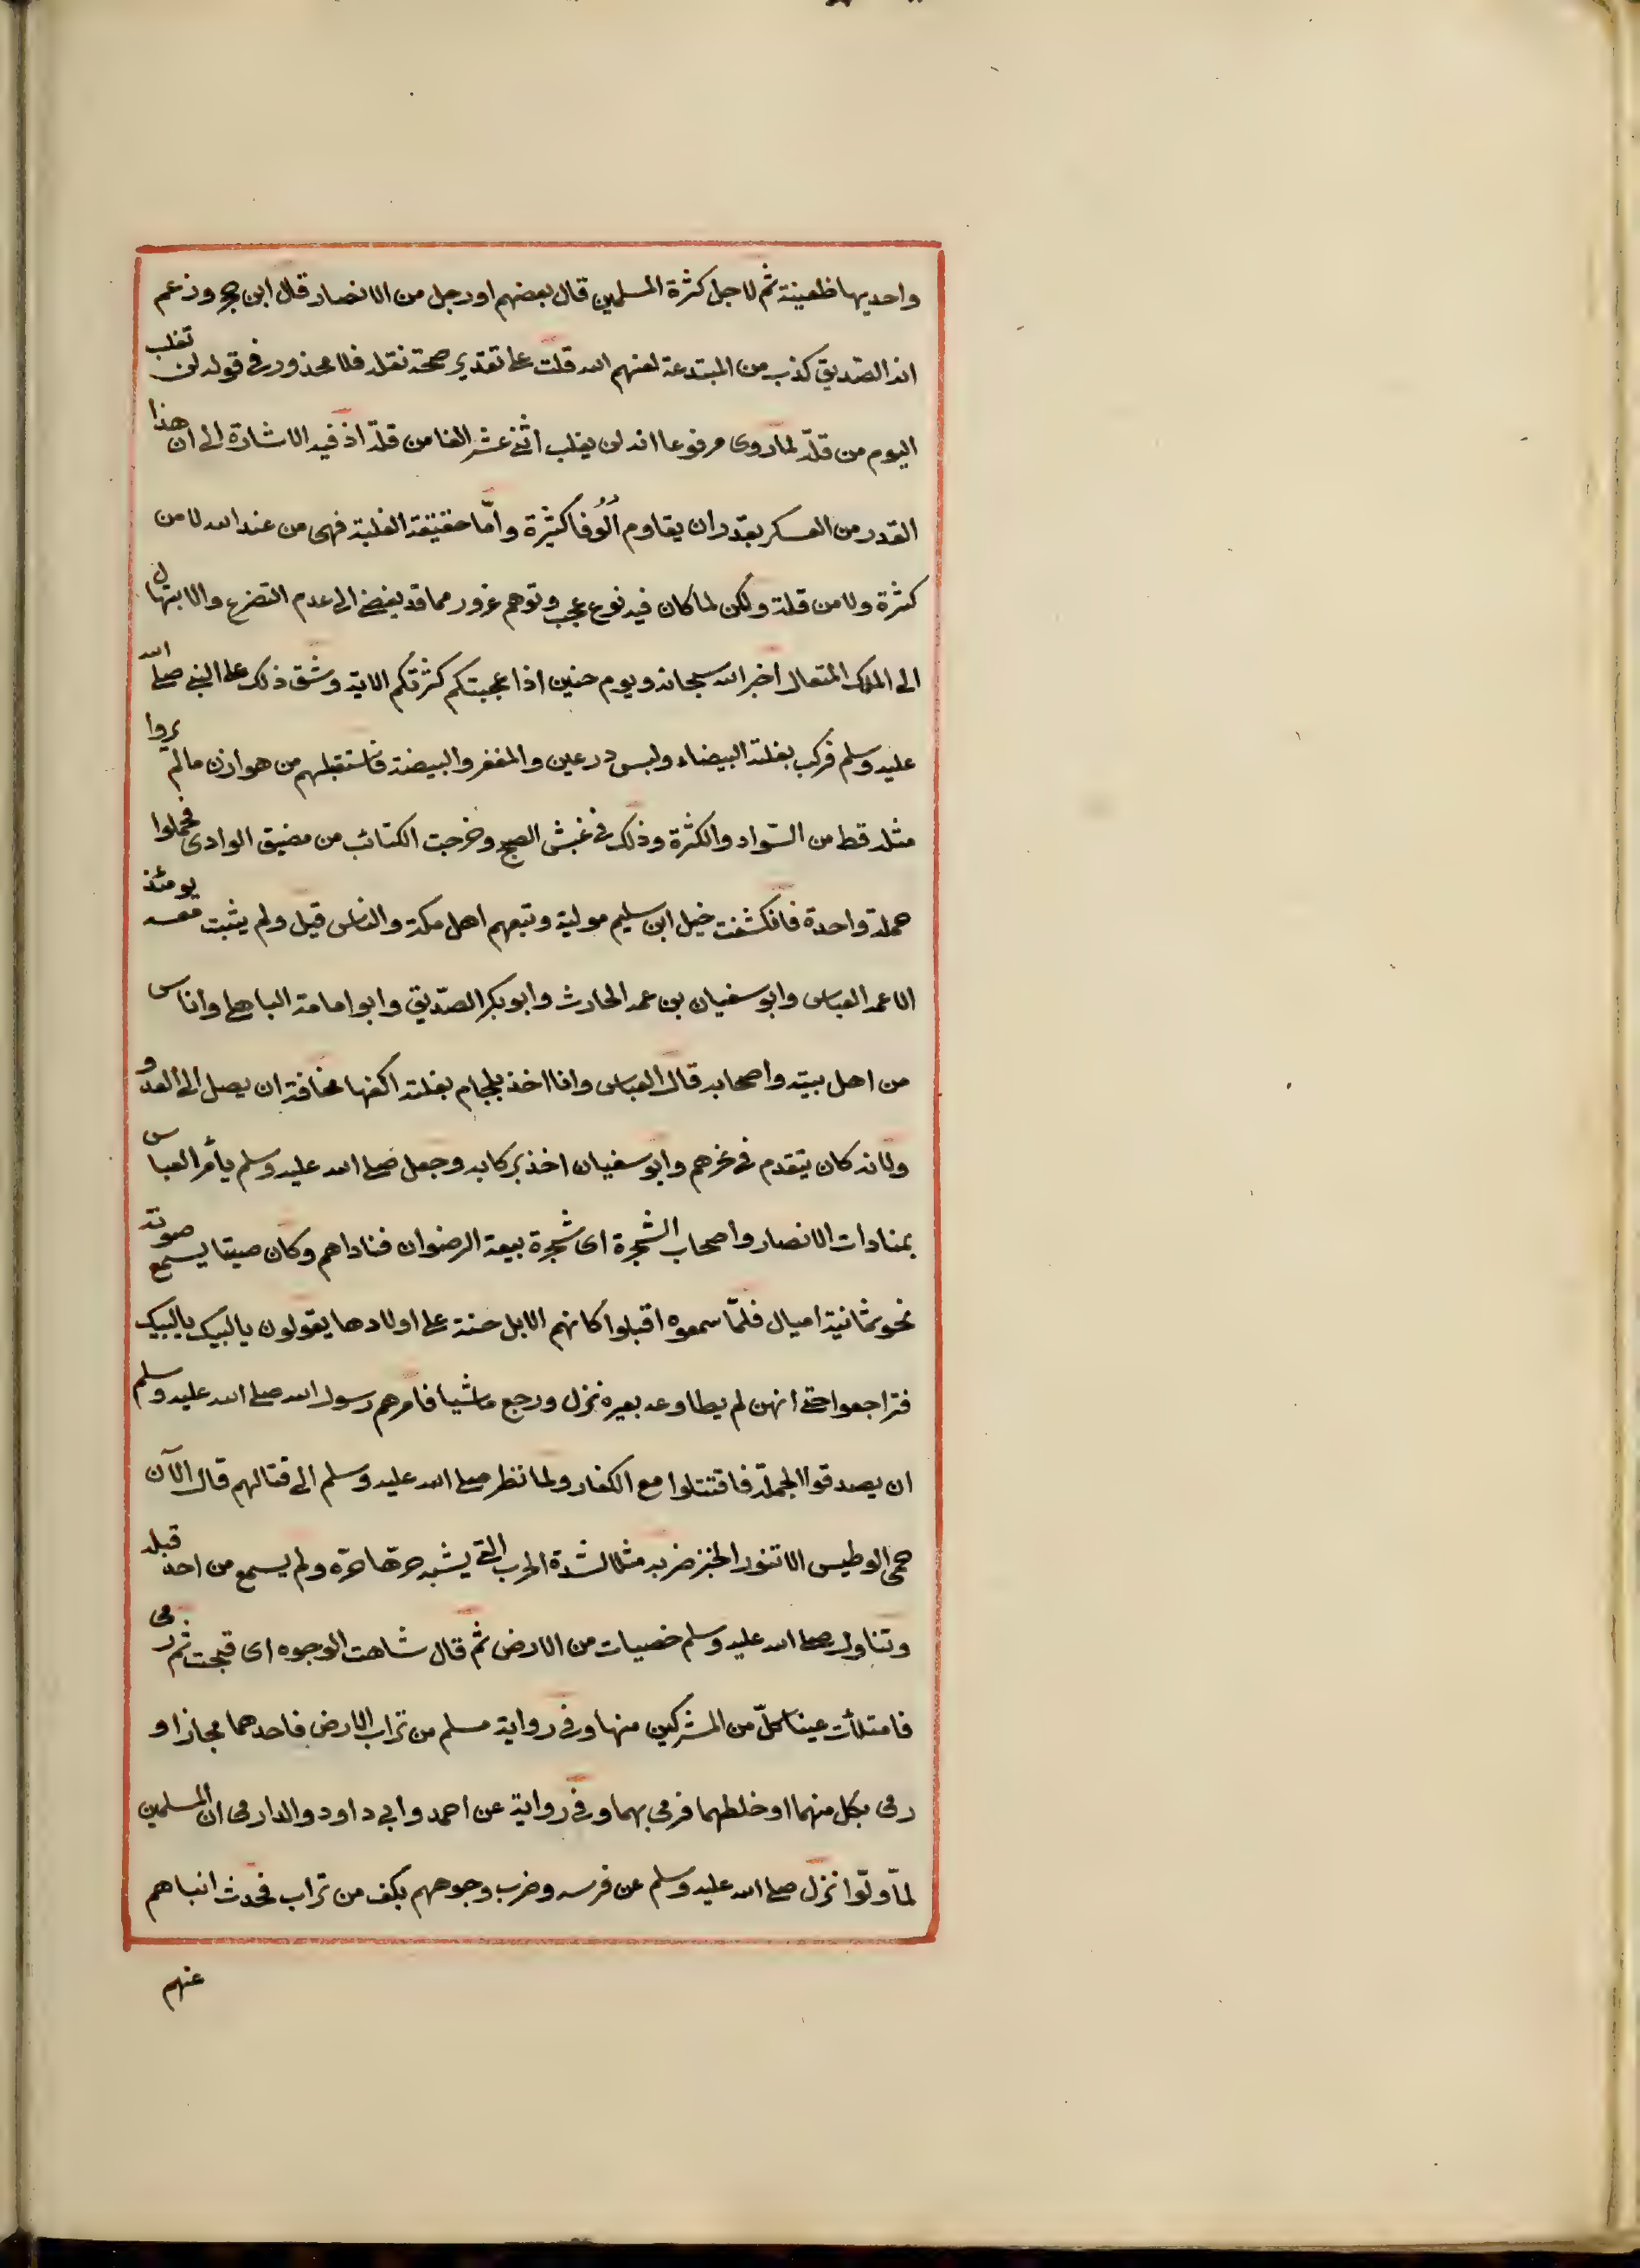 واحديها ظعينة ثم لاجل كثرة المسلمين قال بعضهم او رجل من الانصار قال ابن حجر وزعم
انه الصّديق كذب من المبتدعة لعنهم الله قلت على تقدير صحة نقله فلا محذور فى قوله لن تغلب
اليوم من قلّة لما روى مرفوعا انه لن يغلب اثنى عشر الفا من قلّة اذ فيه الاشارة الى ان هذا
القدر من العسكر يقدر ان يقاوم اُلُوفا كثيرة وامّا حقيقة الغلبة فهى من عند الله لا من
كثرة ولا من قلة ولكن لما كان فيه نوع عجب وتوهم غرور مما قد يفضى الى عدم التضرع والابتهال
الى الملك المتعال اخبر الله سبحانه ويوم حنين اذا عجبتكم كثرتكم الاية وشق ذلك على النبى صلى الله
عليه وسلم فركب بغلته البيضاء ولبس درعين والمغفر والبيضة فاستقبلهم من هوازن ما لم يروا
مثله قط من السّواد والكثرة وذلك فى غبش الصبح وخرجت الكتائب من مضيق الوادى فحملوا
حملة واحدة فانكشفت خيل ابن سليم مولية وتبعهم اهل مكة والناس قيل ولم يثبت معه يومئذ
الا عمه العباس وابو سفيان بن عمه الحارث وابو بكر الصّديق وابو امامة الباهلى واناس
من اهل بيته واصحابه قال العباس وانا اخذ بلجام بغلته اكفها مخافة ان يصل الى العدو
ولانه كان يتقدم فى نحرهم وابو سفيان اخذ بركابه وجعل صلى الله عليه وسلم يأمر العباس
بمنادات الانصار واصحاب الشجرة اى شجرة بيعة الرضوان فناداهم وكان صيتا يسمع صوته
نحو ثمانية اميال فلمّا سمعوه اقبلوا كانهم الابل حنة على اولادها يقولون يا لبيك يا لبيك
فتراجعوا حتى انهن لم يطاوعه بعيره نزل ورجع ماشيا فامرهم رسول الله صلى الله عليه وسلم
ان يصدقوا الجملة فاقتتلوا مع الكفار ولما نظر صلى الله عليه وسلم الى قتالهم قال الآن
حمى الوطيس الا تنور الخبز ضربه مثلا لشدة الحرب التى يشبه حرّها حرّه ولم يسمع من احد قبله
وتناول صلى الله عليه وسلم خصيات من الارض ثم قال شاهت الوجوه اى قبحت ثم رمى
فامتلأت عينا كلّ من المشركين منها وفى رواية مسلم من تراب الارض فاحدهما مجازا و
رمى بكل منهما او خلطهما فرمى بهما وفى رواية عن احمد وابي داود والدارمى ان المسلمين
لمّا ولّوا نزل صلى الله عليه وسلم عن فرسه وضرب وجوههم بكف من تراب فحدث انباهم
عنهم